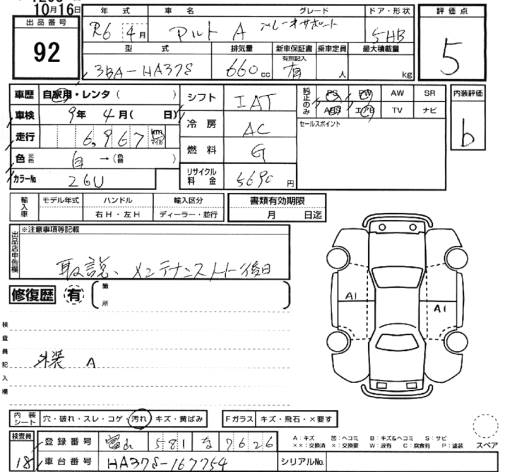 10月16日
出品番号
92
年式
車名
グレード
ドア・形状
R6 4月
アルト A
5HB
評価点
5
型式
排気量
新車保証書
有別記入
乗車定員
最大積載量
3BA-HA37S
660cc
有
人
kg
車歴 自家用・レンタ( )
車検 9年 4月( 日)
走行 6,967 km マイル
色 元色 白→(色替 )
カラーNo 26U
シフト IAT
冷房 AC
燃料 G
リサイクル料金 5690円
純正のみ
PS PW AW SR
エアB TV ナビ
セールスポイント
内装評価
b
輸入車
モデル年式
ハンドル
輸入区分
右H・左H
ディーラー・並行
書類有効期限
月 日迄
出品店申告欄
※注意事項等記載
取説、メンテナンスノート後日
修復歴 有
箇所
検査員記入欄
外装 A
A1
A1
内装シート
穴・破れ・スレ・コゲ・汚れ・キズ・黄ばみ
Fガラス
キズ・飛石・×要す
検査員
18
登録番号
581 な 7626
車台番号
HA37S-167754
シリアルNo.
A:キズ 凹:ヘコミ B:キズ&ヘコミ S:サビ
××:交換済 ×:要交換 W:波有 C:腐食有 P:塗装
スペア